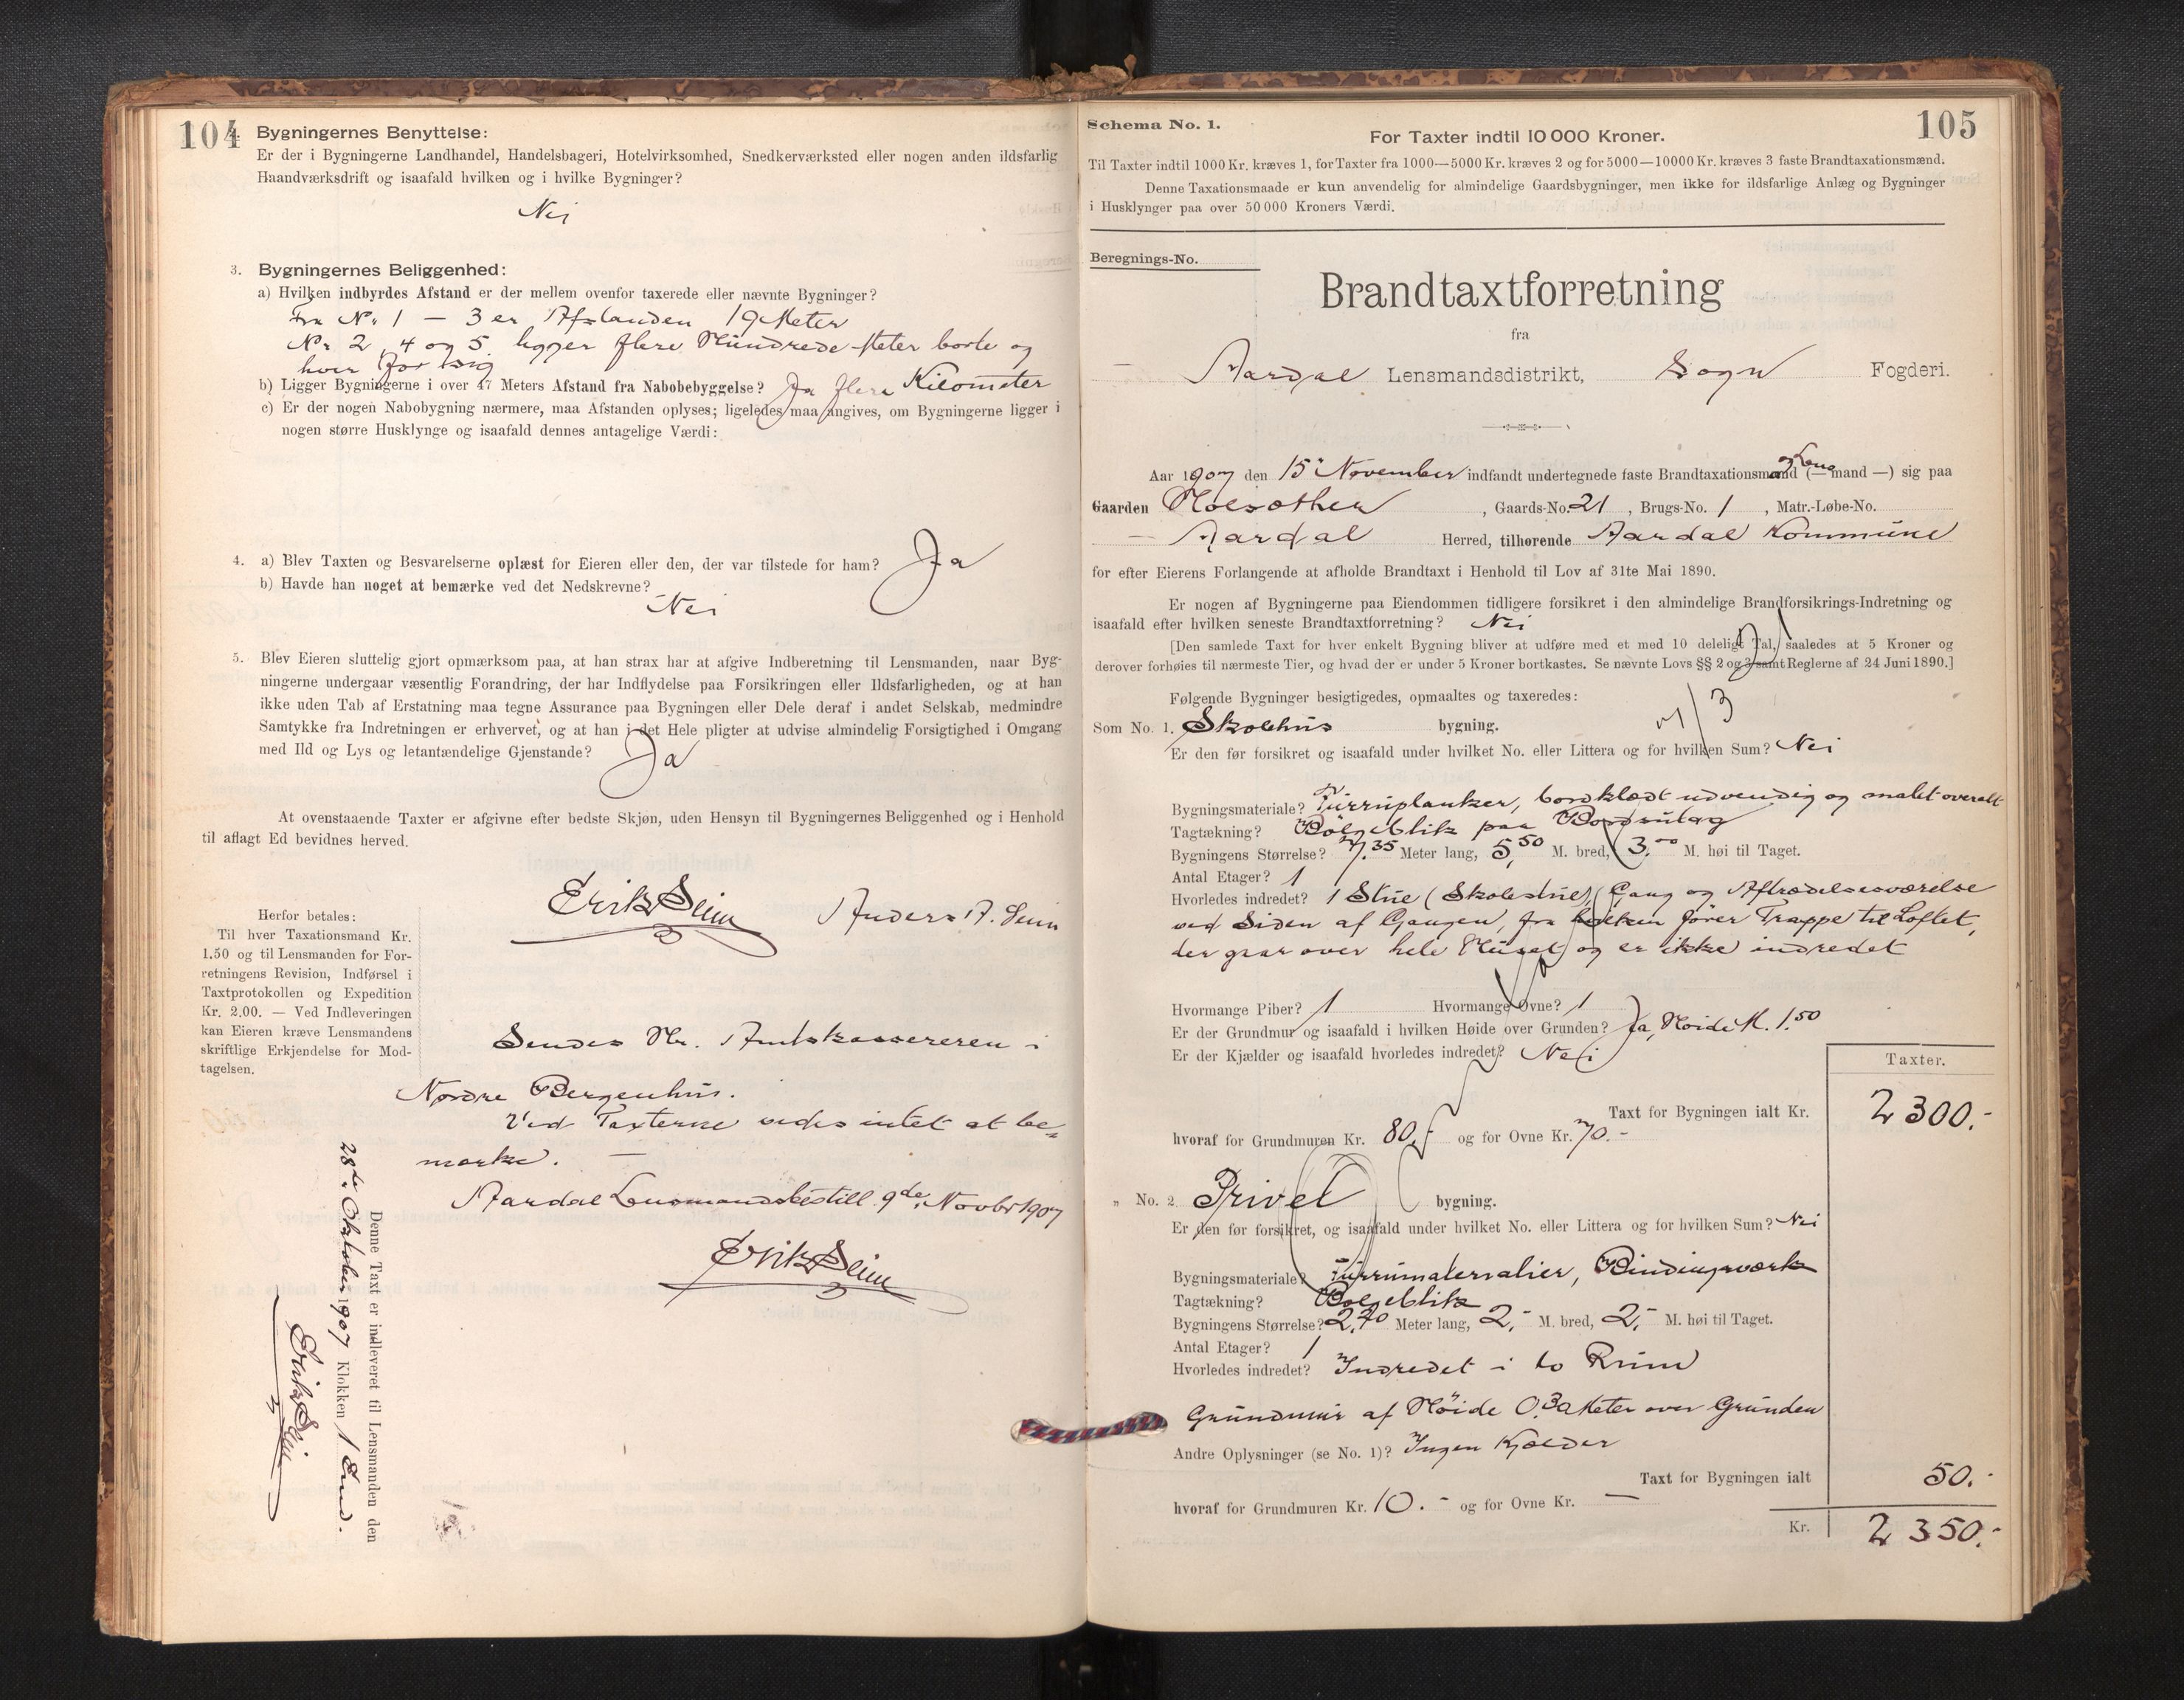 104
Bygningernes Benyttelse:
Er der i Bygningerne Landhandel, Handelsbageri, Hotelvirksomhed, Snedkerværksted eller nogen anden ildsfarlig
Haandværksdrift og isaafald hvilken og i hvilke Bygninger?
Nei
3. Bygningernes Beliggenhed:
a) Hvilken indbyrdes Afstand er der mellem ovenfor taxerede eller nævnte Bygninger?
Fra No 1 — 3 er Afstanden 19 Meter
No 2, 4 og 5 ligger flere Hundrede Meter borte og
hver for sig
b) Ligger Bygningerne i over 47 Meters Afstand fra Nabobebyggelse? Ja flere Kilometer
c) Er der nogen Nabobygning nærmere, maa Afstanden oplyses; ligeledes maa angives, om Bygningerne ligger i
nogen større Husklynge og isaafald dennes antagelige Værdi:
4. a) Blev Taxten og Besvarelserne oplæst for Eieren eller den, der var tilstede for ham? Ja
b) Havde han noget at bemærke ved det Nedskrevne?
Nei
5. Blev Eieren sluttelig gjort opmærksom paa, at han strax har at afgive Indberetning til Lensmanden, naar Byg-
ningerne undergaar væsentlig Forandring, der har Indflydelse paa Forsikringen eller Ildsfarligheden, og at han
ikke uden Tab af Erstatning maa tegne Assurance paa Bygningen eller Dele deraf i andet Selskab, medmindre
Samtykke fra Indretningen er erhvervet, og at han i det Hele pligter at udvise almindelig Forsigtighed i Omgang
med Ild og Lys og letantændelige Gjenstande? Ja
At ovenstaaende Taxter er afgivne efter bedste Skjøn, uden Hensyn til Bygningernes Beliggenhed og i Henhold
til aflagt Ed bevidnes herved.
Erik Seim Anders A. Seim
Herfor betales:
Til hver Taxationsmand Kr.
1.50 og til Lensmanden for For-
retningens Revision, Indførsel i
Taxtprotokollen og Expedition
Kr. 2.00. — Ved Indleveringen
kan Eieren kræve Lensmandens
skriftlige Erkjendelse for Mod-
tagelsen.
Sendes Hr. Amtskassereren i
Nordre Bergenhus.
Ved Taxterne vides intet at be-
mærke. —
Aardal Lensmandsbestill. 9de Novbr 1907
Erik Seim
Denne Taxt er indleveret til Lensmanden den
28de Oktober 1907 Klokken 1 Emd.
Erik Seim
105
Schema No. 1.
For Taxter indtil 10 000 Kroner.
Til Taxter indtil 1000 Kr. kræves 1, for Taxter fra 1000—5000 Kr. kræves 2 og for 5000—10000 Kr. kræves 3 faste Brandtaxationsmænd.
Denne Taxationsmaade er kun anvendelig for almindelige Gaardsbygninger, men ikke for ildsfarlige Anlæg og Bygninger
i Husklynger paa over 50 000 Kroners Værdi.
Beregnings-No.
Brandtaxtforretning
fra
Aardal Lensmandsdistrikt, Sogn Fogderi.
Aar 1907 den 15 November indfandt undertegnede faste Brandtaxationsmænd og Lens (— mand —) sig paa
Gaarden Holsæther, Gaards-No. 21, Brugs-No. 1, Matr.-Løbe-No.
Aardal Herred, tilhørende Aardal Kommune
for efter Eierens Forlangende at afholde Brandtaxt i Henhold til Lov af 31te Mai 1890.
Er nogen af Bygningerne paa Eiendommen tidligere forsikret i den almindelige Brandforsikrings-Indretning og
isaafald efter hvilken seneste Brandtaxtforretning? Nei
[Den samlede Taxt for hver enkelt Bygning bliver at udføre med et med 10 deleligt Tal, saaledes at 5 Kroner og
derover forhøies til nærmeste Tier, og hvad der er under 5 Kroner bortkastes. Se nævnte Lovs §§ 2 og 3 samt Reglerne af 24 Juni 1890.]
Følgende Bygninger besigtigedes, opmaaltes og taxeredes:
Som No. 1. Skolehus bygning.
Er den før forsikret og isaafald under hvilket No. eller Littera og for hvilken Sum? Nei
Bygningsmateriale? Furruplanker, bordklædt udvendig og malet overalt
Tagtækning? Bølgeblik paa Bordsulag
Bygningens Størrelse? 7,35 Meter lang, 5,50 M. bred, 3.— M. høi til Taget.
Antal Etager? 1
Hvorledes indredet? 1 Stue (Skolestue), Gang og Aftrædelsesværelse
ved Siden af Gangen, fra hvilken fører Trappe til Loftet,
der gaar over hele Huset og er ikke indredet
Hvormange Piber? 1 Hvormange Ovne? 1
Er der Grundmur og isaafald i hvilken Høide over Grunden? Ja, Høide M. 1.50
Er der Kjælder og isaafald hvorledes indredet? Nei
Taxter.
Taxt for Bygningen ialt Kr. 2300.-
hvoraf for Grundmuren Kr. 80,- og for Ovne Kr. 70.-
" No. 2 Privet bygning.
Er den før forsikret, og isaafald under hvilket No. eller Littera og for hvilken Sum? Nei
Bygningsmateriale? Furrumaterialier, Bindingsværk
Tagtækning? Bølgeblik
Bygningens Størrelse? 2,70 Meter lang, 2,- M. bred, 2,- M. høi til Taget.
Antal Etager? 1
Hvorledes indredet? Indredet i to Rum
Grundmur af Høide 0.30 Meter over Grunden
Andre Oplysninger (se No. 1)? Ingen Kjælder
Taxt for Bygningen ialt 50.-
hvoraf for Grundmuren Kr. 10.- og for Ovne Kr. —
Kr. 2350.-